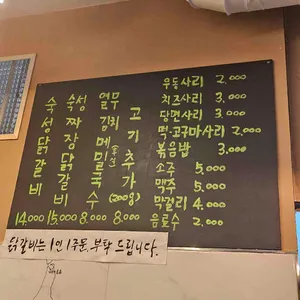 숙성닭갈비 14,000
숙성짜장닭갈비 15,000
열무김치메밀국수 8,000
고기추가 (200g) 8,000
우동사리 2,000
치즈사리 3,000
당면사리 3,000
떡·고구마사리 2,000
볶음밥 3,000
소주 5,000
맥주 5,000
막걸리 4,000
음료수 2,000
닭갈비는 1인 1주문 부탁 드립니다.